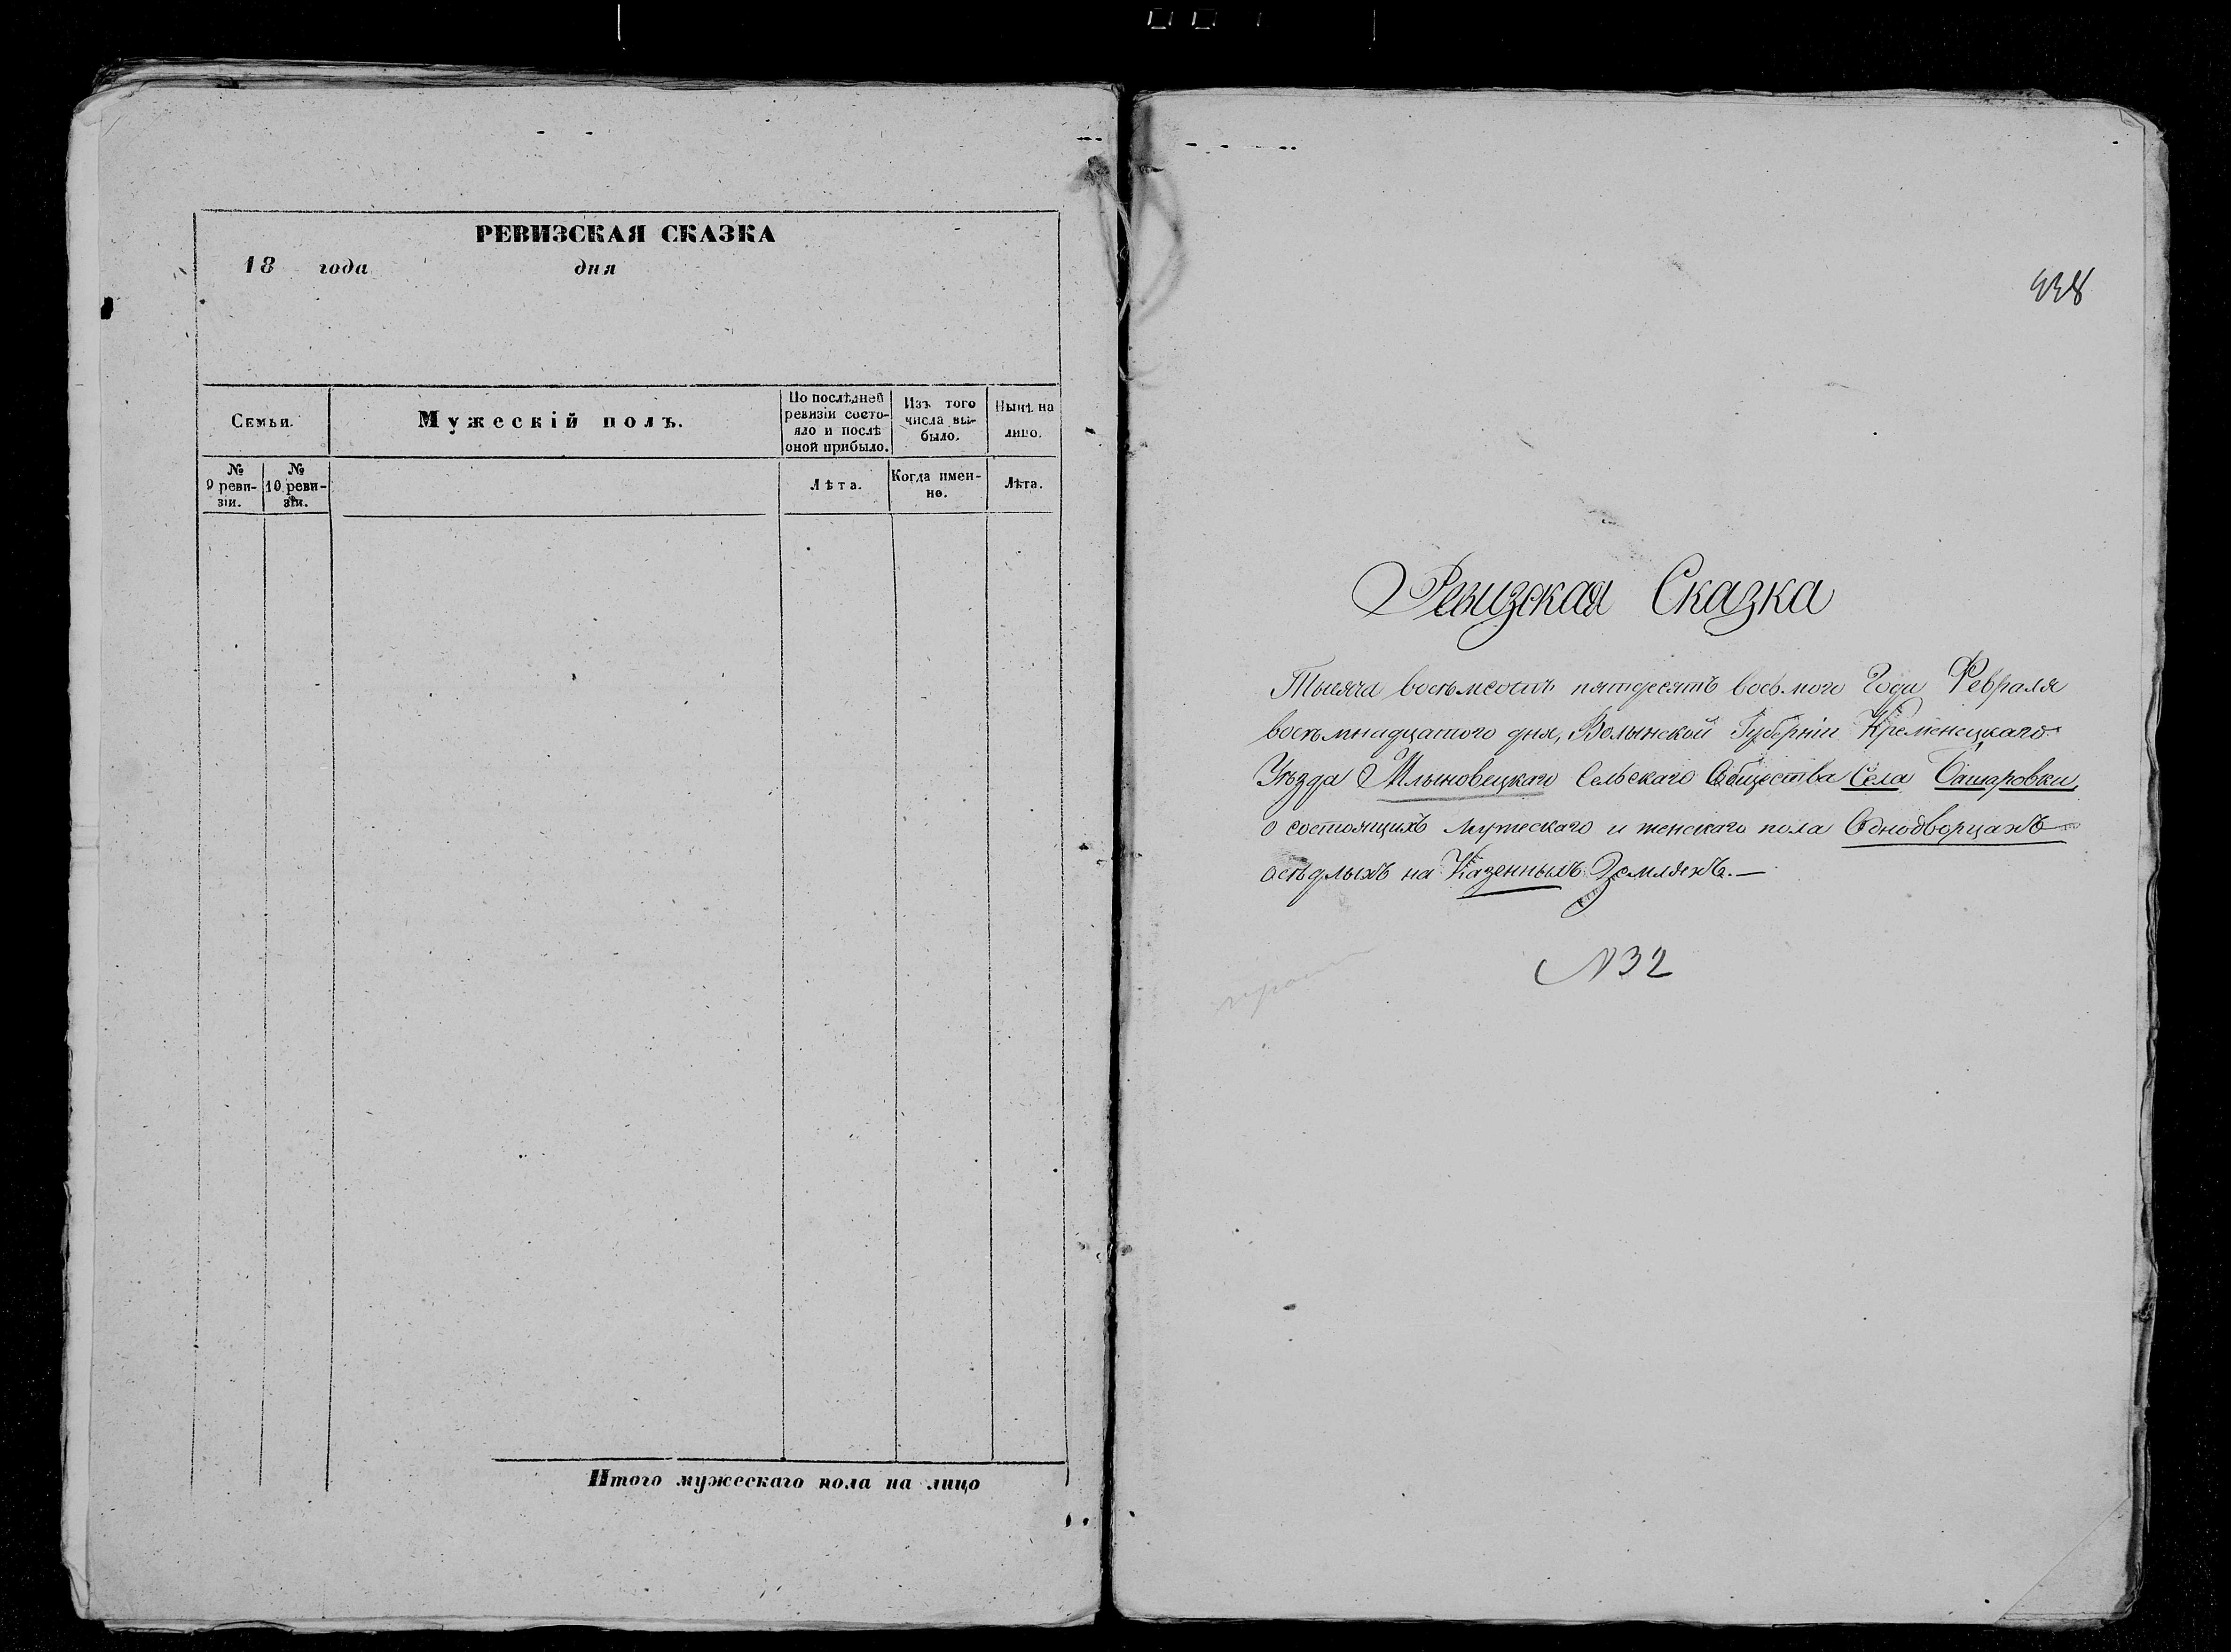 РЕВИЗСКАЯ СКАЗКА
18 года дня
Семьи.
Мужескій полъ.
По послѣдней ревизіи состо-
яло и послѣ
оной прибыло.
Изъ того
числа вы-
было.
Нынѣ на
лицо.
№
9 реви-
зіи.
№
10 реви-
зіи.
Лѣта.
Когда имен-
но.
Лѣта.
Итого мужескаго пола на лицо
438
Ревизская Сказка
Тысяча восемьсотъ пятдесятъ восьмого Года Февраля
восемнадцатого дня, Волынской Губерніи Кременецкаго
Уѣзда Млыновецкаго Сельскаго Общества Села Башаровки,
о состоящихъ мужескаго и женскаго пола Однодворцахъ
осѣдлыхъ на Казенныхъ Земляхъ.—
N 32